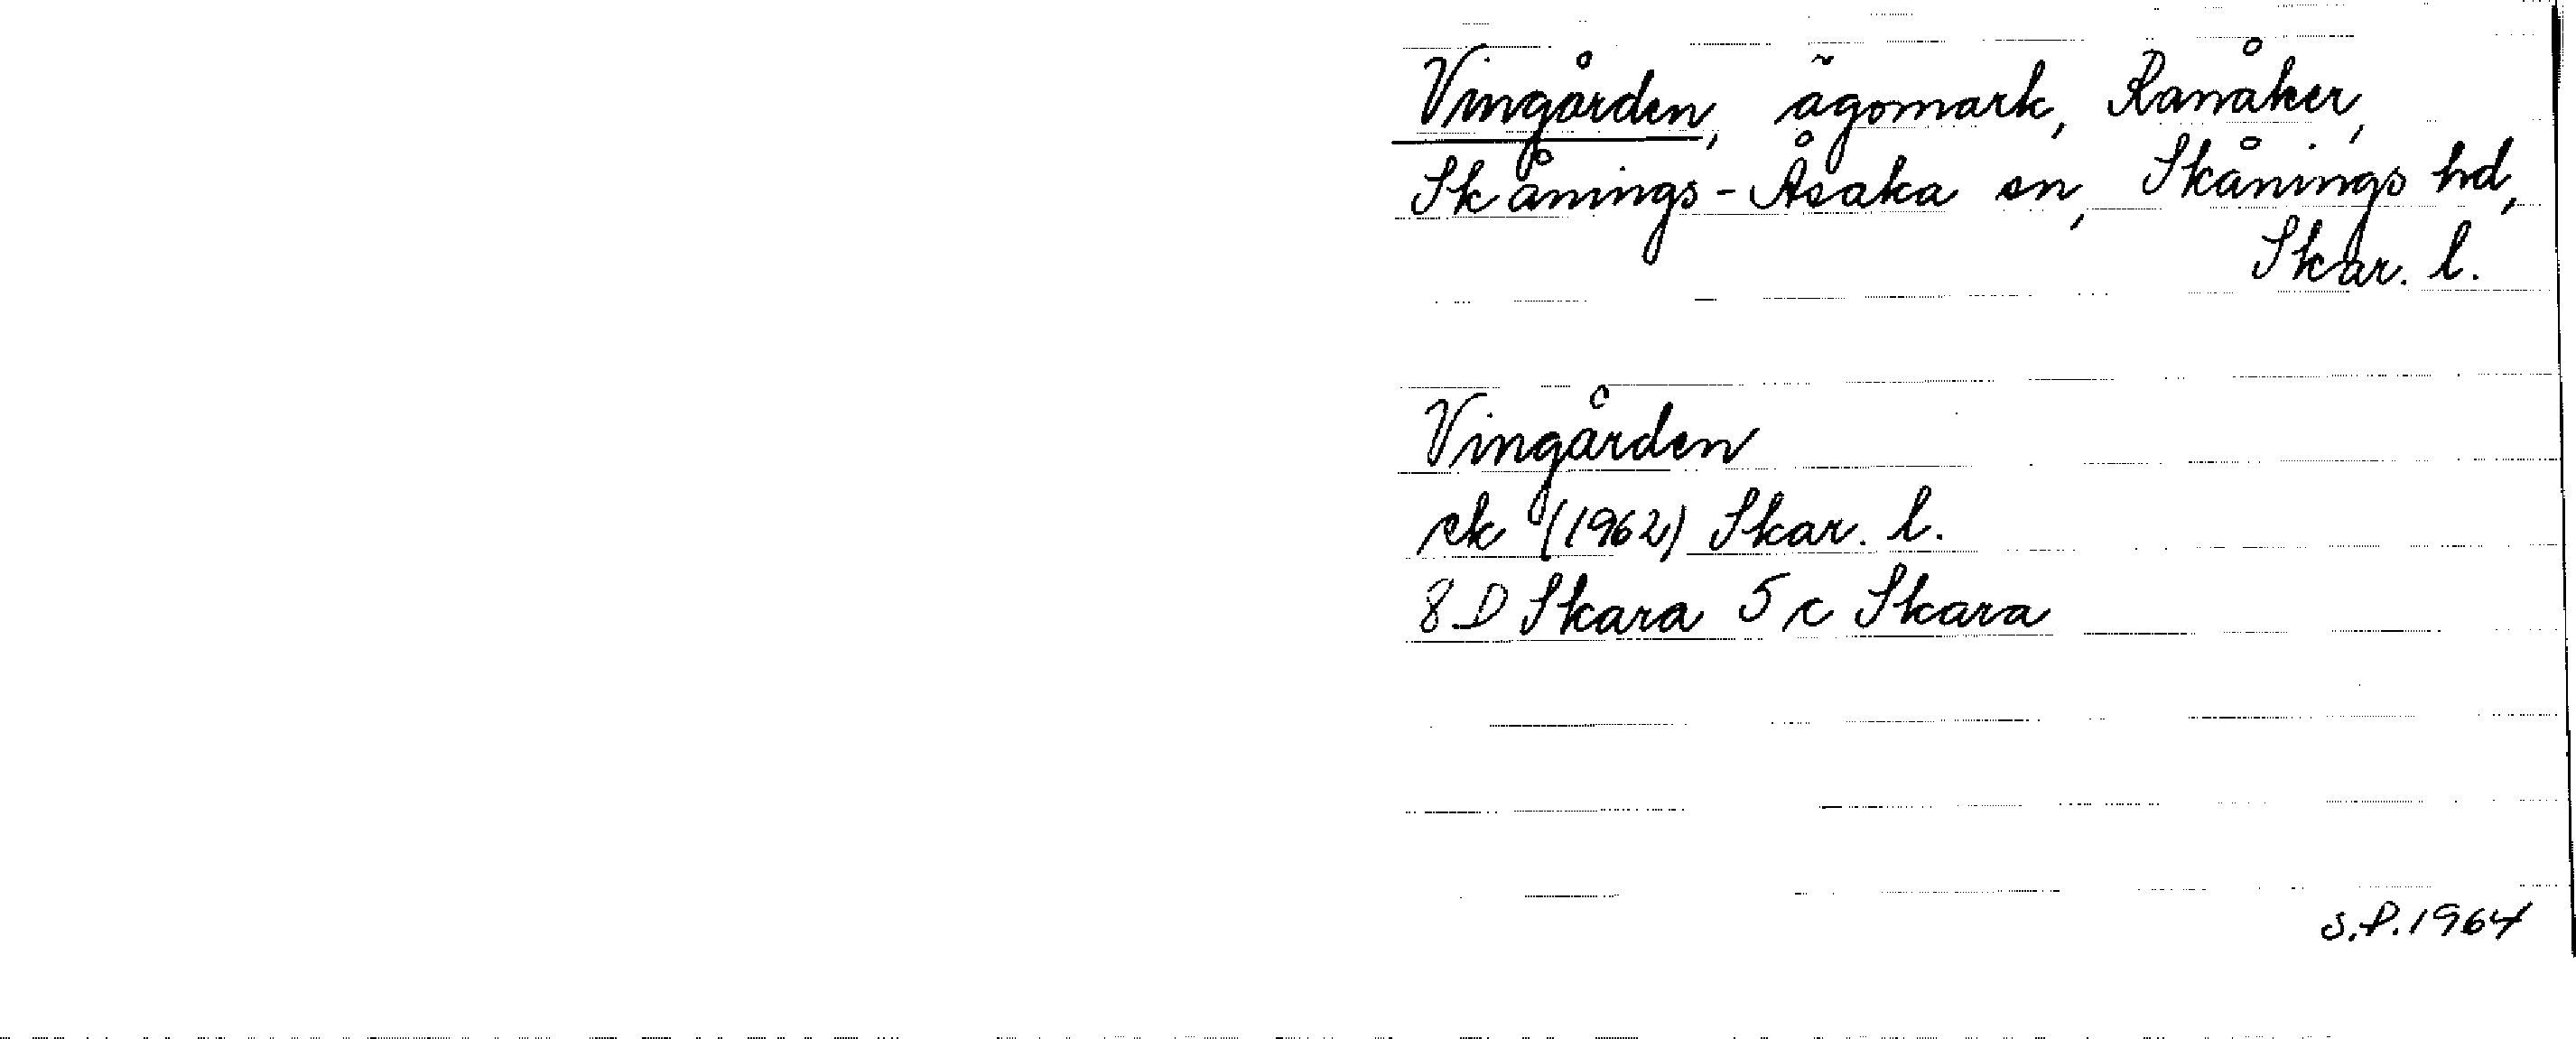 Vingården, ägomark, Ranåker,
Skånings-Åsaka sn, Skånings hd,
Skar. l.
Vingården
ek (1962) Skar. l.
8 D Skara 5 c Skara
S.P. 1964